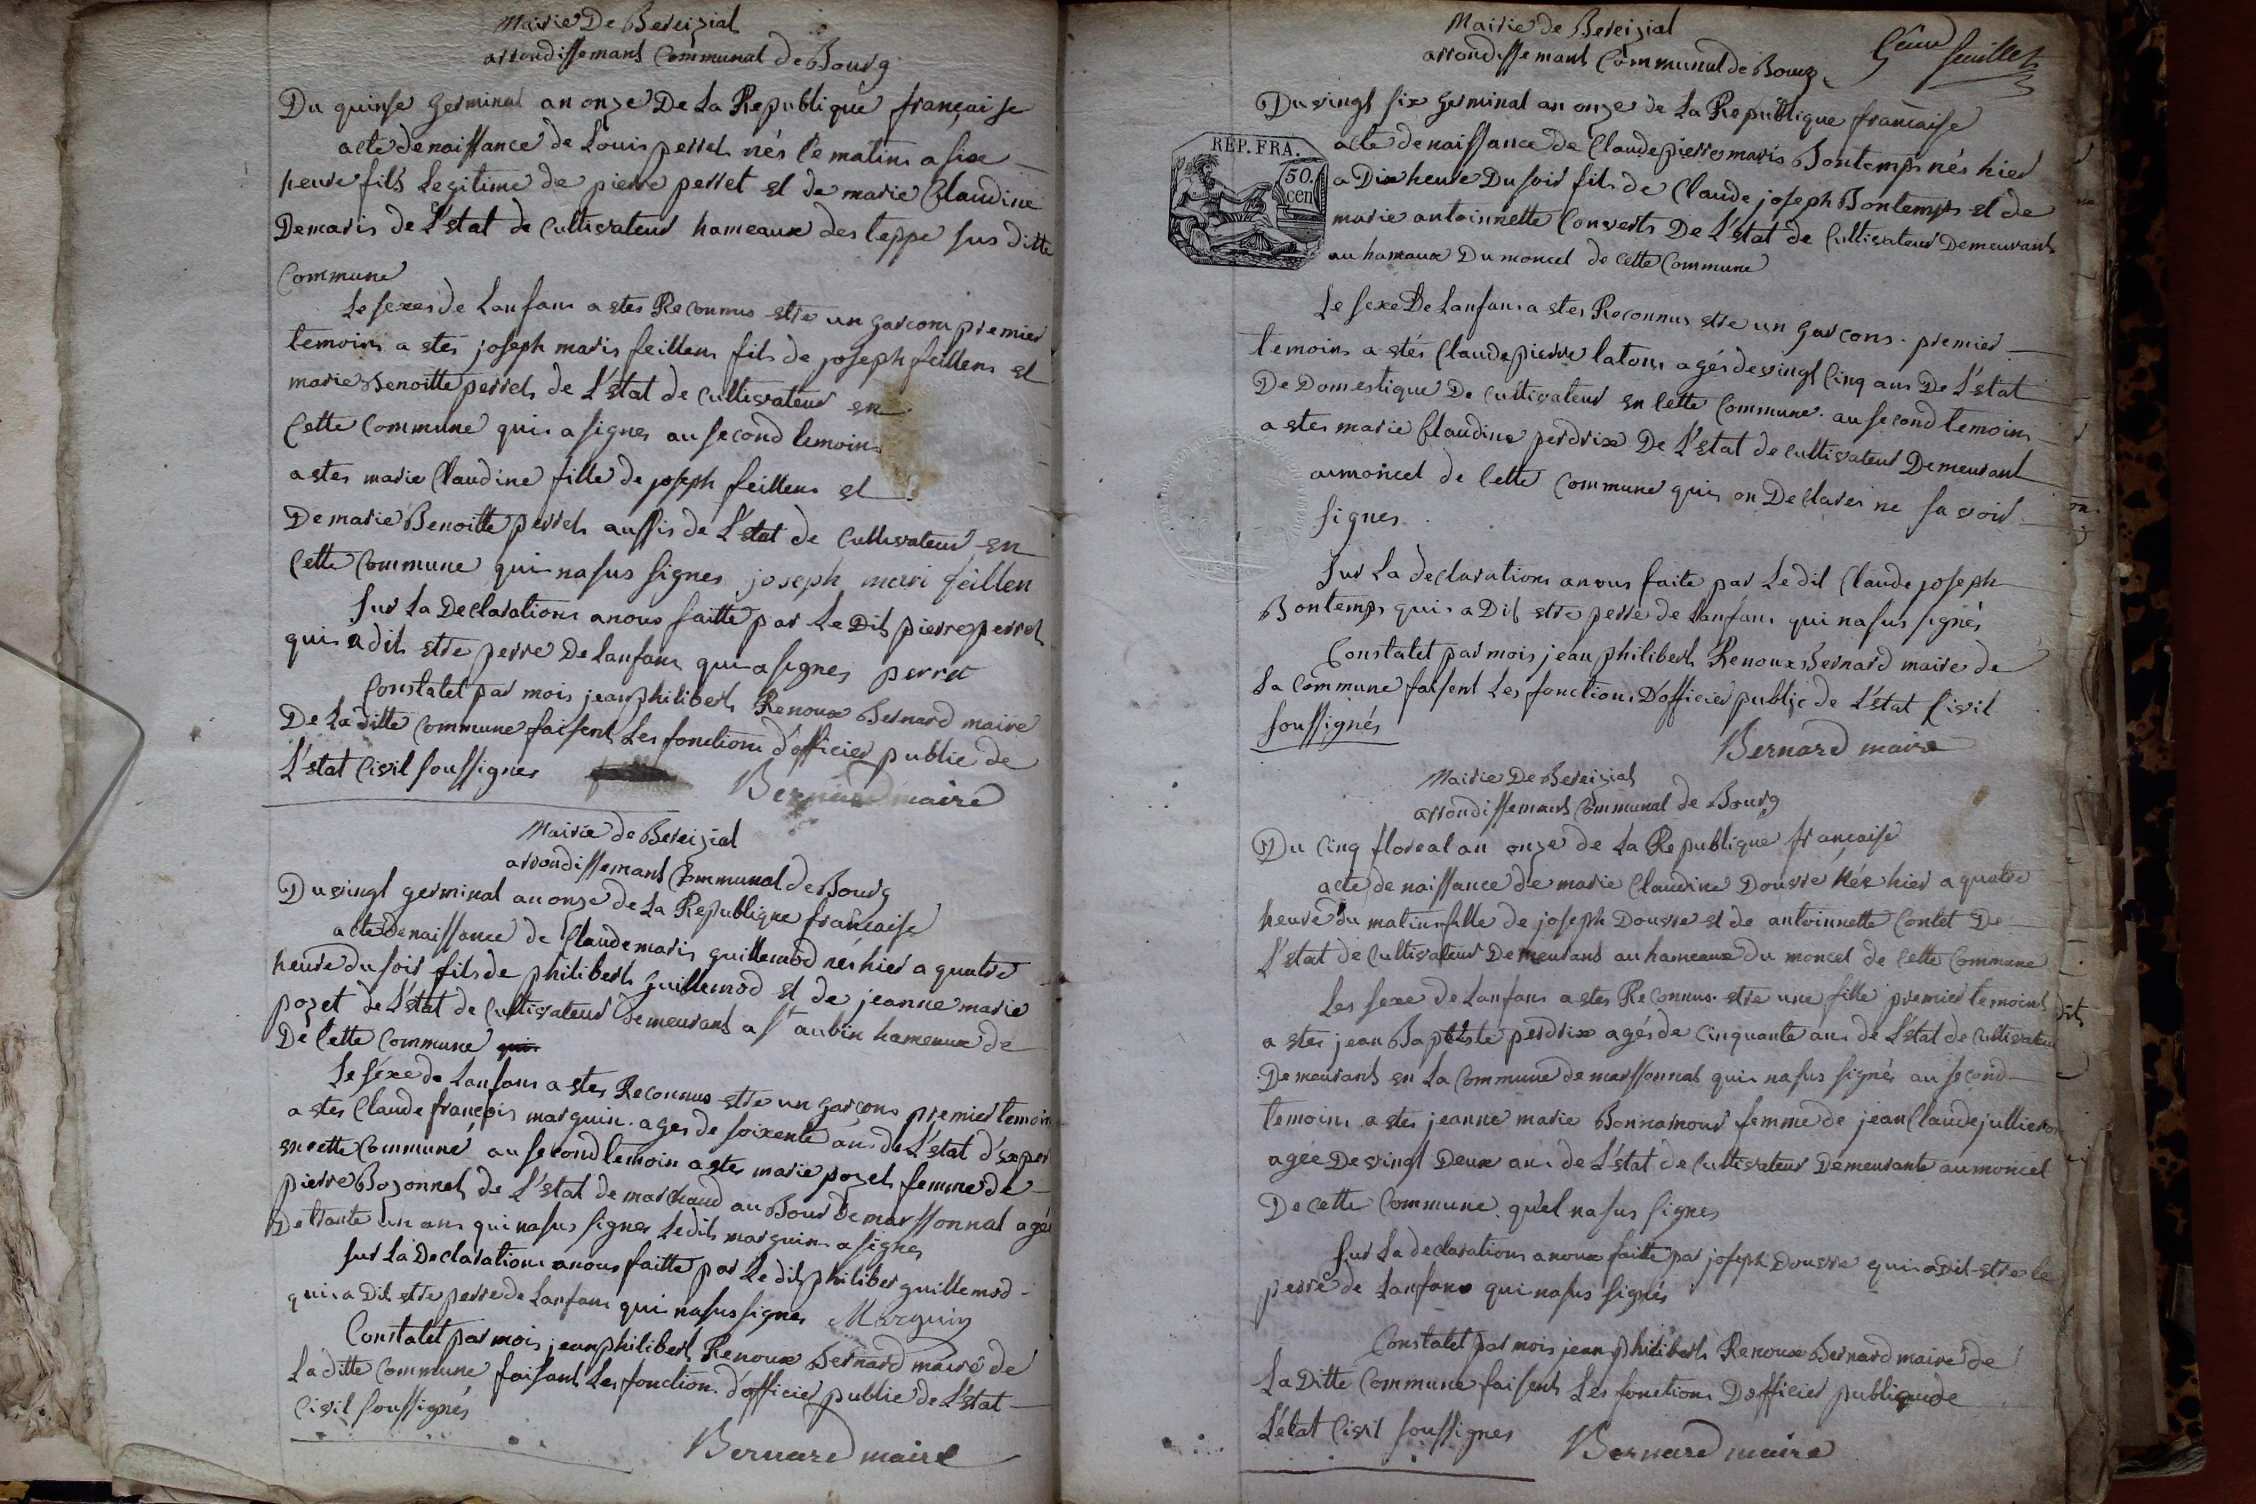 Mairie De Bereizial
arrondissemant Communal de Bourg
Du quinse germinal an onze De La Republique française
acte de naissance de Louis perret nés le matin a six
heure fils Legitime de pierre perret et de marie Claudine
Demaris de L'stat de Cultivateur hameaux des teppe sus ditte
Commune
Le sexes de Lanfam a stes Reconnus stre un garcom premier
temoins a stes joseph maris feillens fils de joseph feillens et
marie Benoitte perret de L'stat de Cultivateur en
Cette Commune qui a signes au second temoins
a stes marie Claudine fille de joseph feillens et
De marie Benoitte perret aussis de L'stat de Cultivateur en
Cette Commune qui na sus signes joseph mari feillen
Sur La Declarations a nous faitte par Le Dit pierre perret
qui a dit stre perre De Lanfam qui a signes perret
Constatet par mois jean philibert Renoux Bernard maire
De La ditte Commune faisent Les fonctions d'officier public de
L'stat Civil soussignes
Bernard maire
Mairie de Bereizial
arrondissemant Communal de Bourg
Du vingt germinal an onze de La Republique française
acte de naissance de Claude maris guillemod nés hier a quatre
heure du soir fils de philibert guillemod et de jeanne marie
pozet de L'stat de Cultivateur demeurant a St aubin hameaux de
De Cette Commune qui
Le séxe de Lanfam a stes Reconnus stre un garcons premier temoin
a stes Claude françois marguin ages de soixente ans de L'stat d'exper
en cette Commune au second temoin a stes marie pozet femme de
pierre Bozonnet de L'stat de marchand au Bour de marssonnal agé
De trante un ans qui na sus signes Le dit marguin a signes
Sur La Declarations a nous faitte par Le dit philiber guillemod
qui a Dit stre perre de Lanfam qui na sus signes Marguin
Constatet par mois jean philibert Renoux Bernard maire de
La ditte Commune faisant Les fonction d'officier public de L'stat
Civil soussignés
Bernard maire
Mairie de Bereizial
arrondissemant Communal de Bourg
feuillet
Du vingt six germinal an onze de La Republique française
RÉP. FRA.
50.
cen
acte de naissance de Claude pierre maris Bontemps nés hier
a Dix heure Du soir fils de Claude joseph Bontemps et de
marie antoinnette Converts De L'stat de Cultivateur Demeurant
au hameaux Du moncel de cette Commune
Le sexe De Lanfam a stes Reconnus stre un garcons premier
temoins a stés Claude pierre laton agés de vingt Cinq ans De L'stat
De Domestique De Cultivateur en Cette Commune au second temoins
a stes marie Claudine perdrix De L'stat de Cultivateur Demeurant
au moncel de Cette Commune qui on Declares ne savoir
signes
Sur La declarations a nous faite par Le dit Claude joseph
Bontemps qui a Dit stre perre de Lanfam qui na sus signés
Constatet par mois jean philibert Renoux Bernard maire de
La Commune faisent Les fonctions D'officier public de L'stat Civil
soussignés
Bernard maire
Mairie De Bereizial
arrondissemant Communal de Bourg
Du Cinq floreal an onze de La Republique française
acte de naissance de marie Claudine Douvre Néz hier a quatre
heure du matin fille de joseph Douvre et de antoinnette Contet De
L'stat de Cultivateur Demeurant au hameaux du moncel de Cette Commune
Les sexe de Lanfam a stes Reconnus stre une fille premier temoins
a stes jean Baptiste perdrix agés de Cinquante ans de L'stat de Cultivateur
Demeurant en La Commune de marssonnal qui na sus signés au second
temoins a stes jeanne marie Bonnamour femme de jean Claude jullieron
agée De vingt Deux ans de L'stat de Cultivateur Demeurante au moncel
De cette Commune quel na sus signes
Sur La declarations a noux faitte par joseph Douvre qui a Dit stre le
perre de Lanfam qui na sus signés
Constatet par mois jean philibert Renoux Bernard maire de
La Ditte Commune faisent Les fonctions D'officier publique de
L'état Civil soussignes
Bernard maire